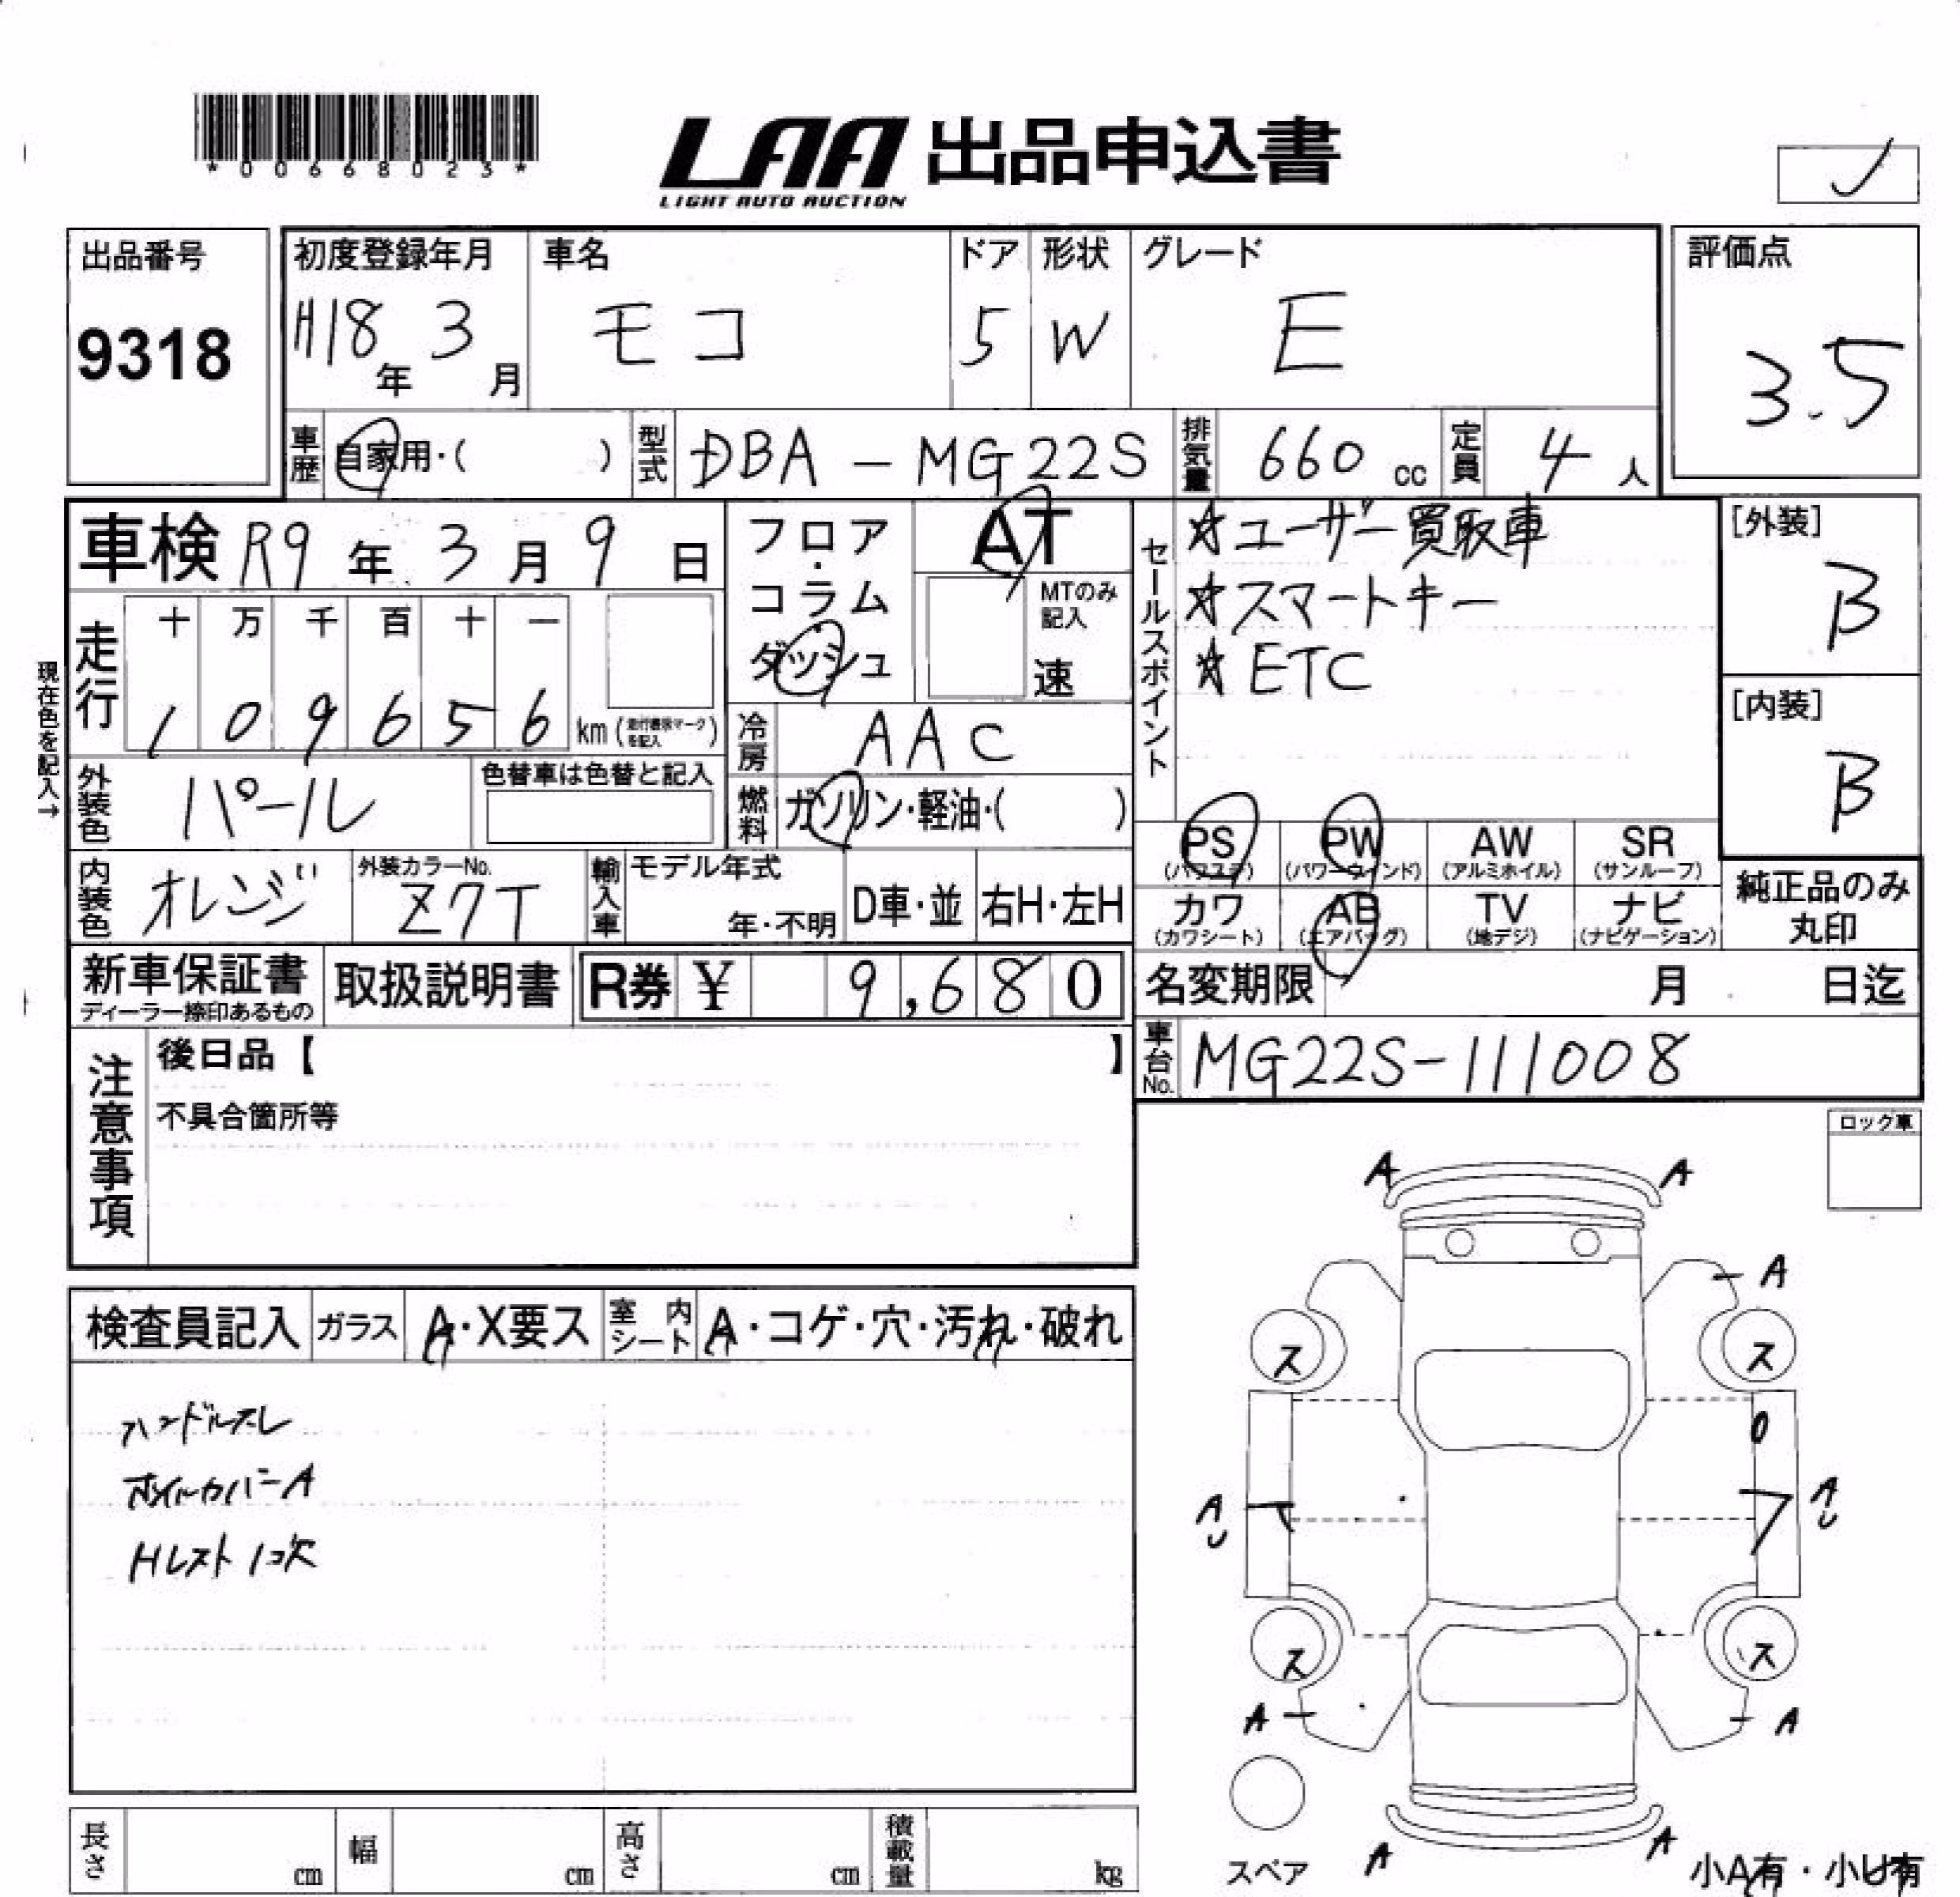 *00668023*
LAA 出品申込書
LIGHT AUTO AUCTION
出品番号
9318
初度登録年月
H18年 3月
車名
モコ
ドア
5
形状
W
グレード
E
評価点
3.5
車歴 自家用・( )
型式 DBA-MG22S
排気量 660 cc
定員 4 人
車検 R9年 3月 9日
フロア・コラム・ダッシュ
AT
MTのみ記入
速
セールスポイント
☆ユーザー買取車
☆スマートキー
☆ETC
[外装]
B
[内装]
B
現在色を記入→
走行
十 万 千 百 十 一
1 0 9 6 5 6 km
冷房 AAC
外装色 パール
色替車は色替と記入
燃料 ガソリン・軽油・( )
PS (パワステ)
PW (パワーウインド)
AW (アルミホイル)
SR (サンルーフ)
カワ (カワシート)
AB (エアバッグ)
TV (地デジ)
ナビ (ナビゲーション)
純正品のみ丸印
内装色 オレンジ
外装カラーNo.
Z7T
輸入車 モデル年式
年・不明
D車・並
右H・左H
新車保証書
ディーラー捺印あるもの
取扱説明書
R券 ¥ 9,680
名変期限 月 日迄
車台No. MG22S-111008
注意事項
後日品【 】
不具合箇所等
ロック車
検査員記入
ガラス A・X要ス
室内シート A・コゲ・穴・汚れ・破れ
ハンドルスレ
ホイルカバーA
Hレスト1コ欠
A A
A
ス ス
0
A
U
A
U
ス ス
A A
スペア
A A
小A有・小U有
長さ cm
幅 cm
高さ cm
積載量 kg